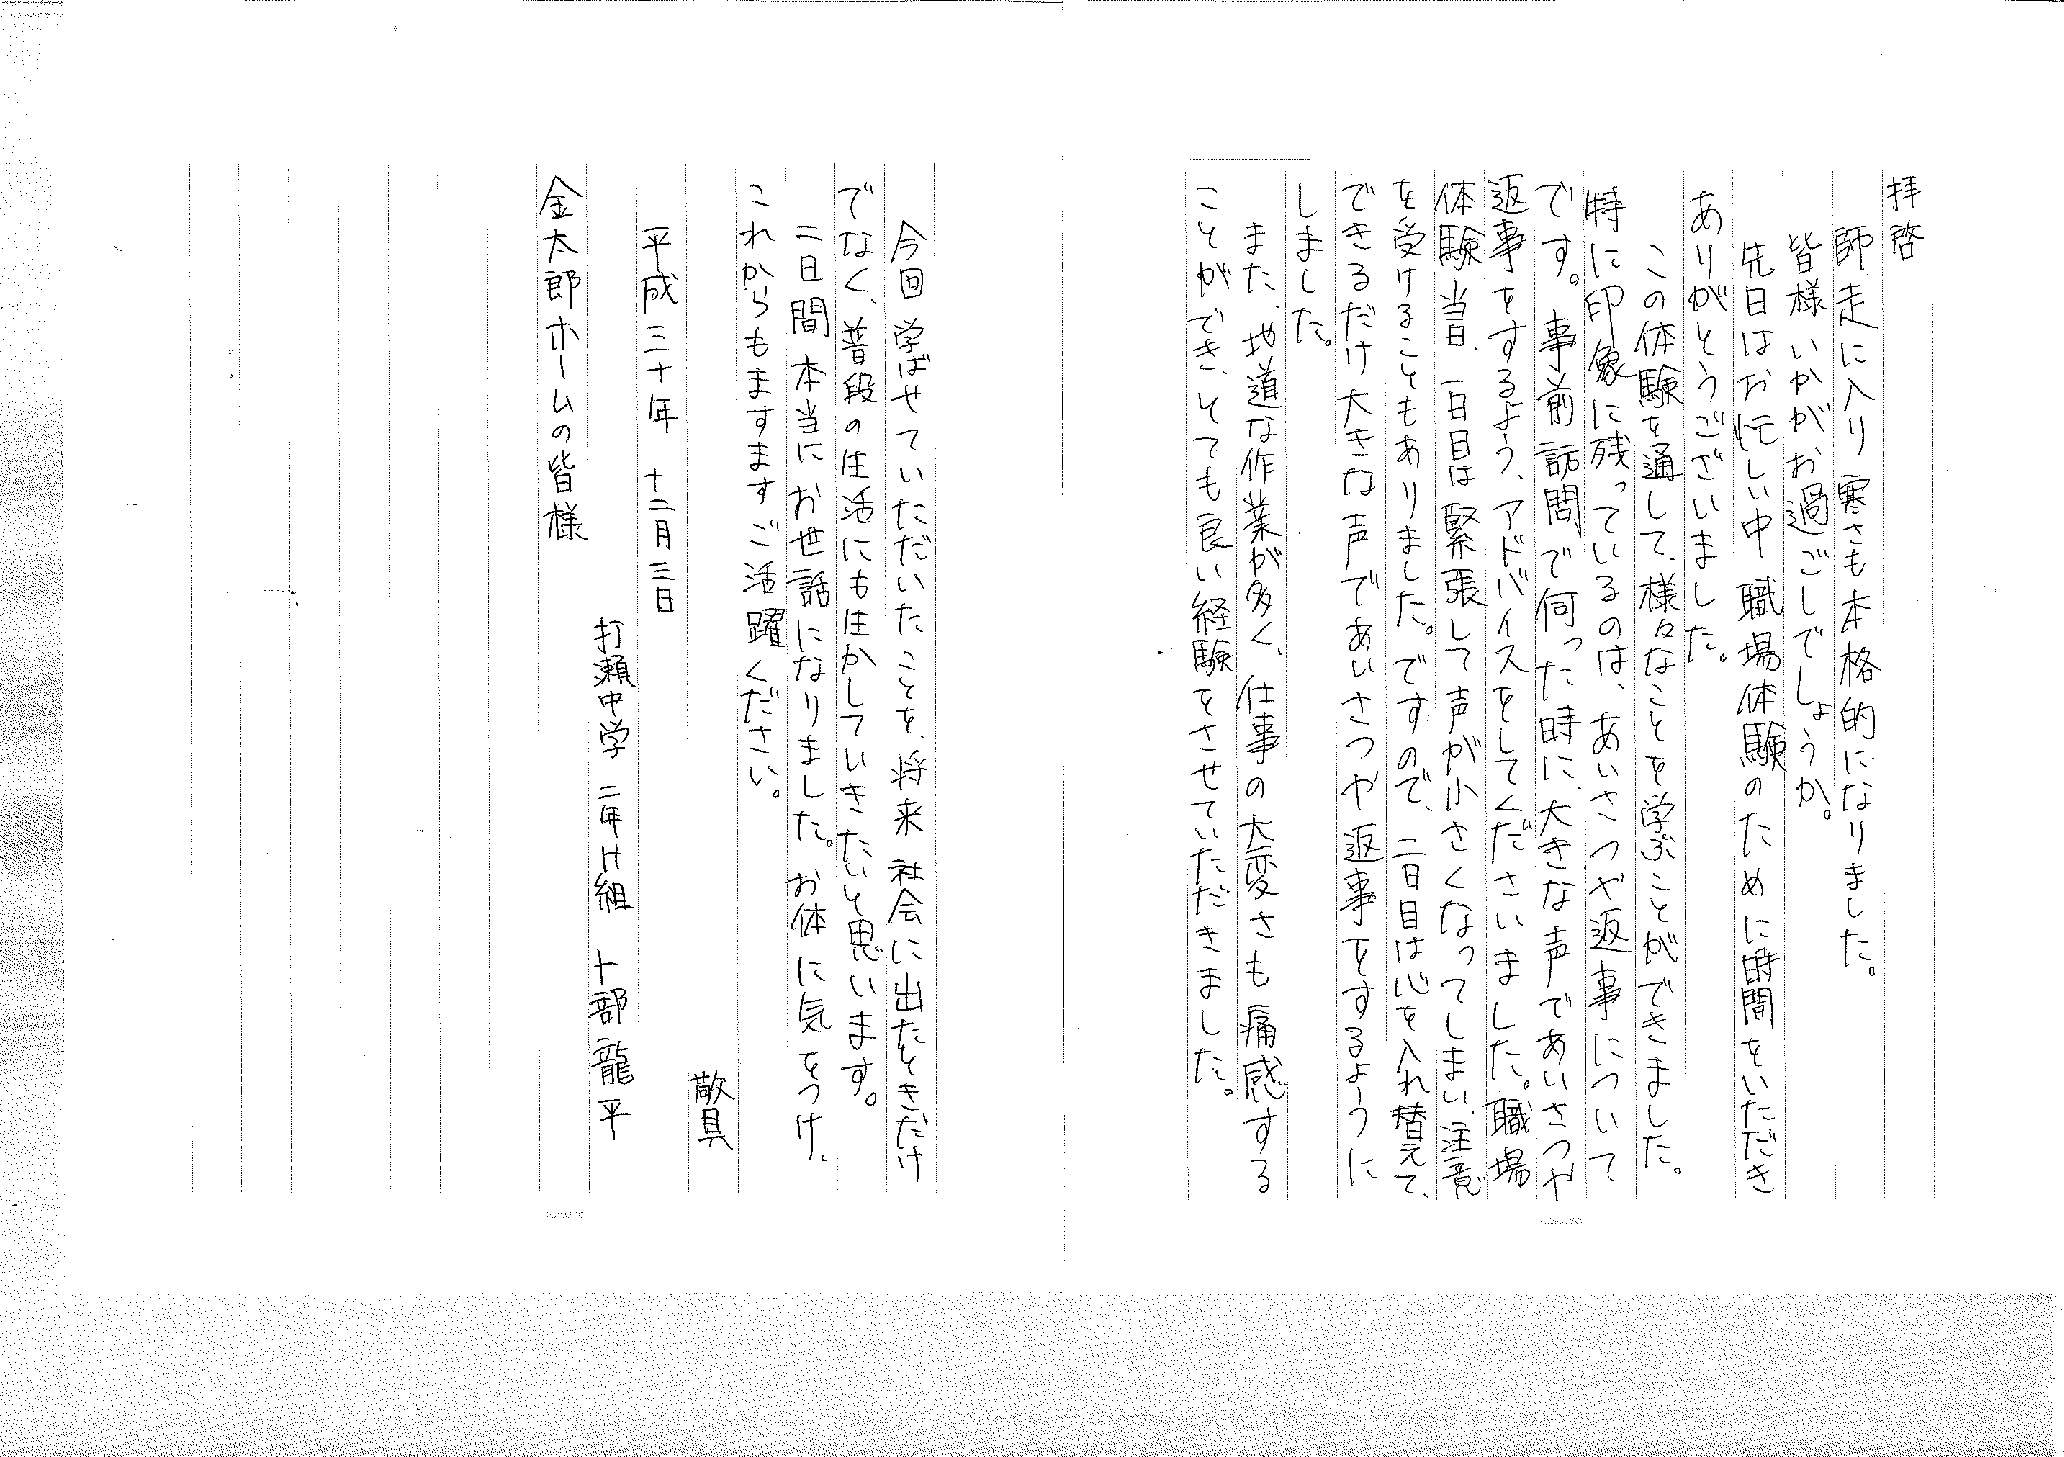 拝啓
師走に入り寒さも本格的になりました。
皆様いかがお過ごしでしょうか。
先日はお忙しい中職場体験のために時間をいただき
ありがとうございました。
この体験を通して、様々なことを学ぶことができました。
特に印象に残っているのは、あいさつや返事について
です。事前訪問で伺った時に、大きな声であいさつや
返事をするよう、アドバイスをしてくださいました。職場
体験当日、一日目は緊張して声が小さくなってしまい、注意
を受けることもありました。ですので、二日目は心を入れ替えて、
できるだけ大きな声であいさつや返事をするように
しました。
また、地道な作業が多く、仕事の大変さも痛感する
ことができ、とても良い経験をさせていただきました。
今回学ばせていただいたことを、将来社会に出たときだけ
でなく、普段の生活にも生かしていきたいと思います。
二日間本当にお世話になりました。お体に気をつけ、
これからもますますご活躍ください。
敬具
平成三十年 十二月三日
打瀬中学 二年H組 卜部龍平
金太郎ホームの皆様